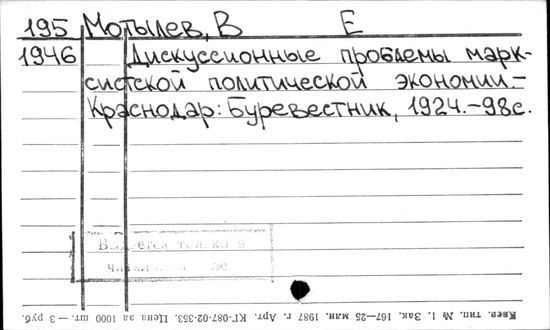 195 Мотылев, В Е
1946 Дискуссионные проблемы марк-
систской политической экономии.-
Краснодар: Буревестник, 1924.-98с.
Выдается только в
Киев. тип. № 1. Зак. 167—25 млн. 1987 г. Арт. КГ-087-02-353. Цена за 1000 шт. — 3 руб.